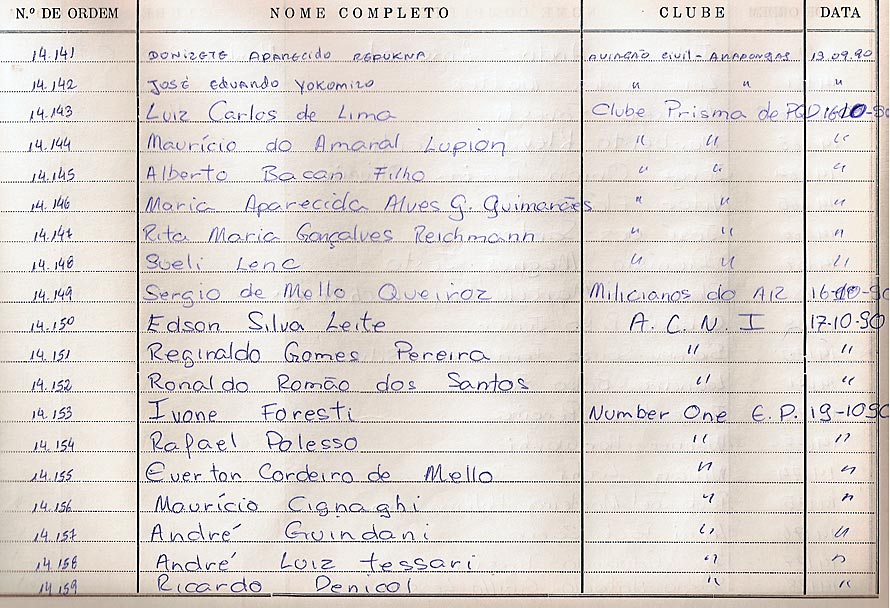 N.º DE ORDEM NOME COMPLETO CLUBE DATA
14.141 DONIZETE APARECIDO REDUKNA AVIAÇÃO CIVIL - ARAPONGAS 19.09.90
14.142 JOSÉ EDUARDO YOKOMIZO " " "
14.143 Luiz Carlos de Lima Clube Prisma de PGD 16-10-90
14.144 Maurício do Amaral Lupion " " "
14.145 Alberto Bacan Filho " " "
14.146 Maria Aparecida Alves G. Guimarães " " "
14.147 Rita Maria Gonçalves Reichmann " " "
14.148 Sueli Lenc " " "
14.149 Sergio de Mello Queiroz Milicianos do AR 16-10-90
14.150 Edson Silva Leite A. C. N. I 17-10-90
14.151 Reginaldo Gomes Pereira " "
14.152 Ronaldo Romão dos Santos " "
14.153 Ivone Foresti Number One E.P. 19-10-90
14.154 Rafael Polesso " "
14.155 Everton Cordeiro de Mello " "
14.156 Maurício Cignaghi " "
14.157 André Guindani " "
14.158 André Luiz Tessari " "
14.159 Ricardo Denicol " "